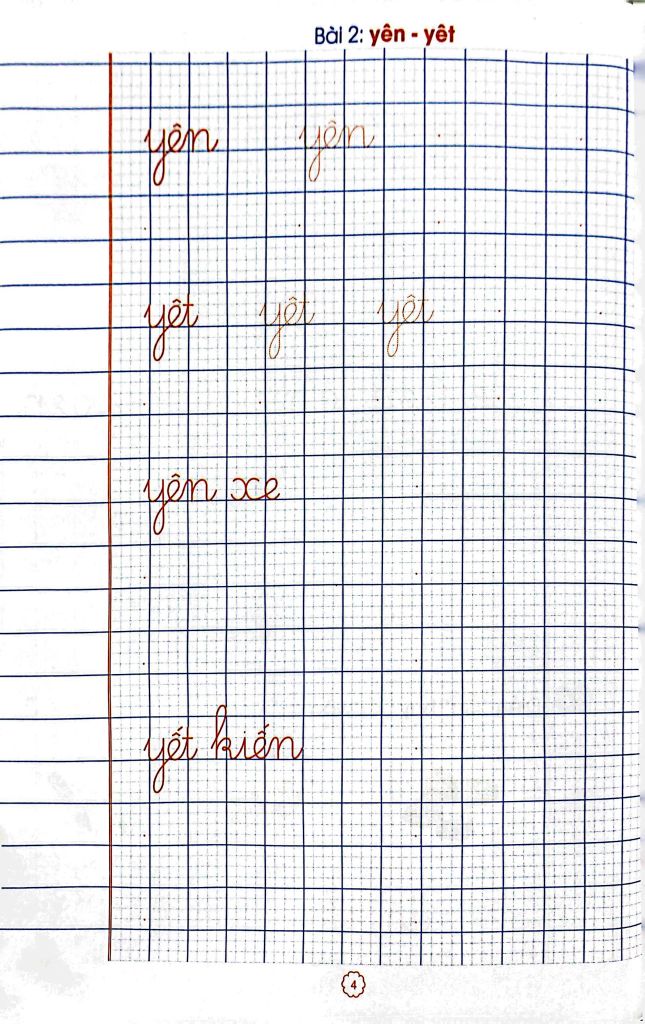 Bài 2: yên - yêt
yên yên
yêt yêt yêt
yên xe
yết kiến
4